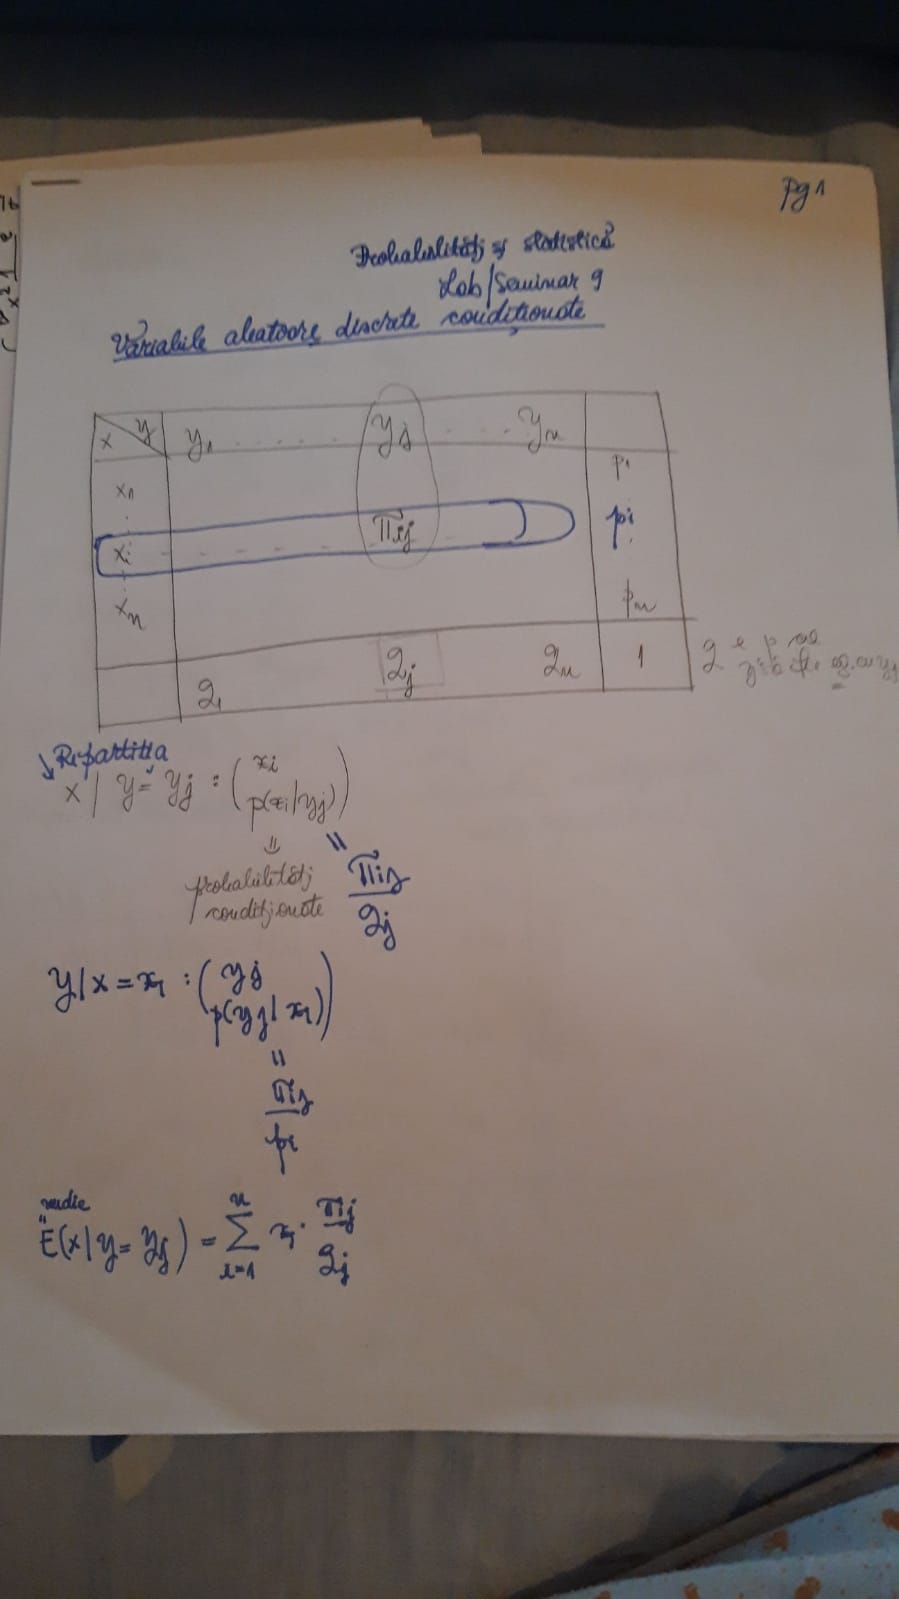 Pg 1
Probabilități și statistică
Lab/Seminar 9
Variabile aleatoare discrete condiționate
x y y₁ . . . . . yⱼ . . . yₘ
x₁ p₁
xᵢ - - - - πᵢⱼ pᵢ
xₙ pₙ
q₁ qⱼ qₘ 1 q e p
Repartitia
x | y = yⱼ : ( xᵢ
p(xᵢ|yⱼ) )
= =
probabilități condiționate πᵢⱼ / qⱼ
y | x = xᵢ : ( yⱼ
p(yⱼ | xᵢ) )
=
πᵢⱼ
pᵢ
medie
"
E(x | y = yⱼ) = ∑ᵢ₌₁ⁿ xᵢ · πᵢⱼ / qⱼ